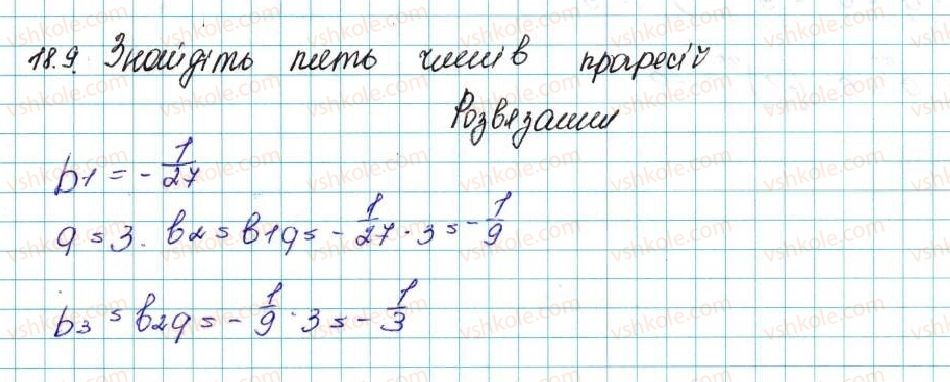 18.9. Знайдіть пять членів прогресій
Розвязання
b1 = - 1/27
q = 3. b2 = b1q = - 1/27 · 3 = - 1/9
b3 = b2q = - 1/9 · 3 = - 1/3